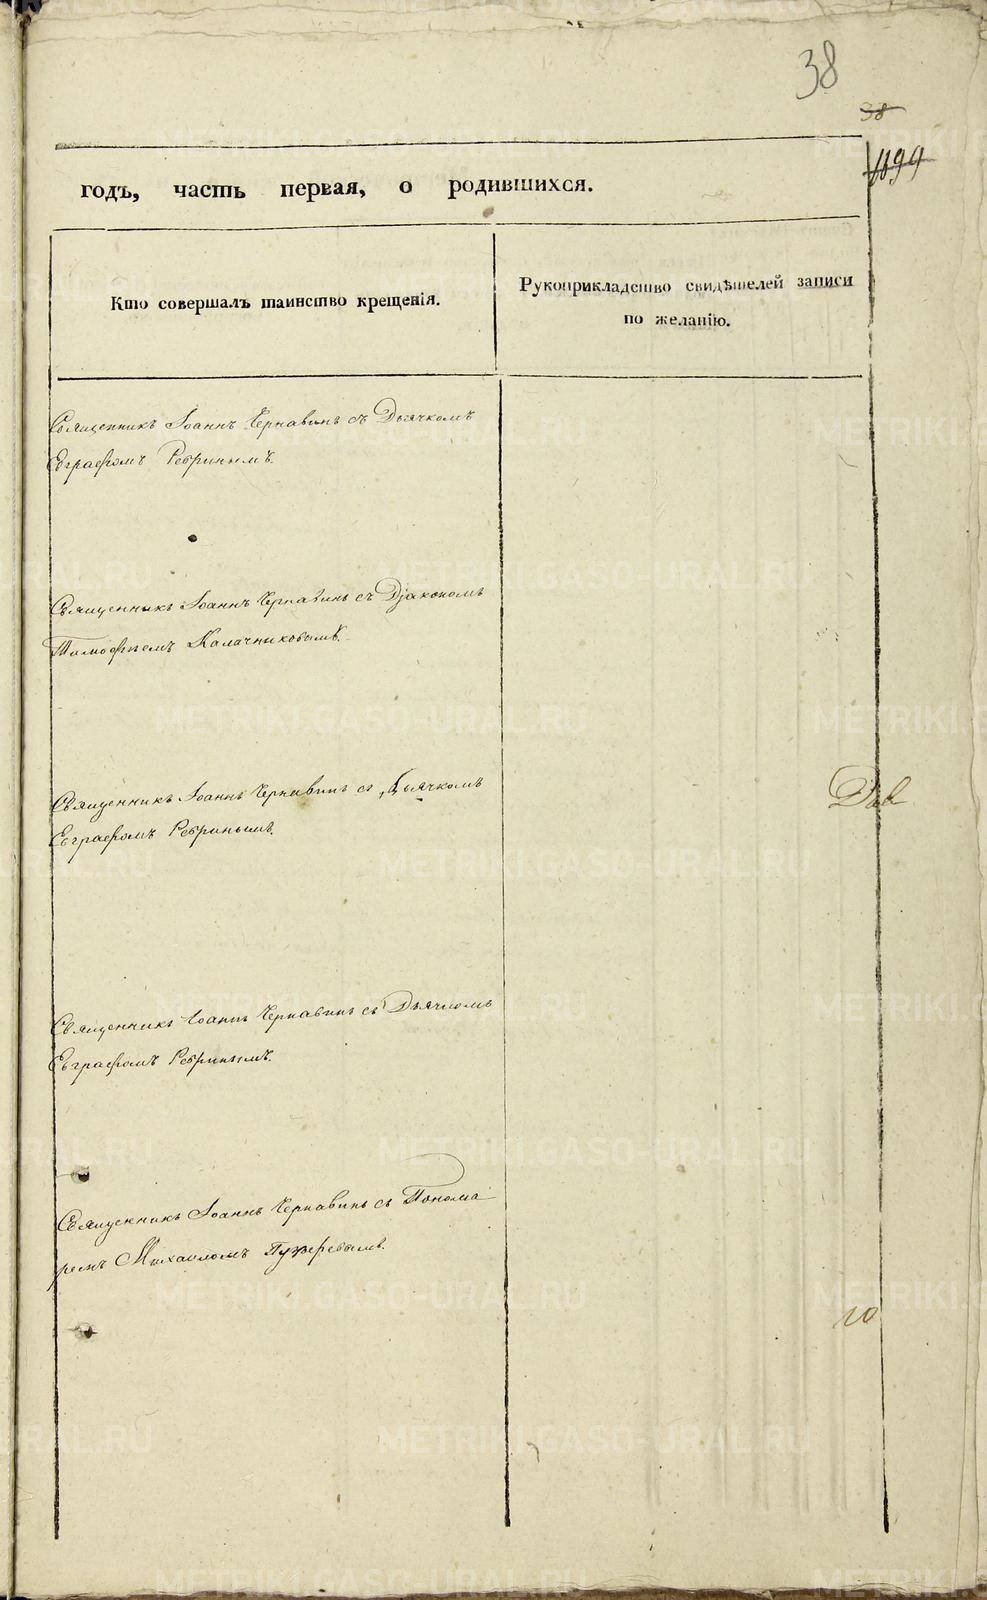 38
38
1099
годъ, часть первая, о родившихся.
Кто совершалъ таинство крещенія.
Рукоприкладство свидѣтелей записи
по желанію.
Священникъ Іоаннъ Чернавинъ съ Дьячкомъ
Евграфомъ Ребринымъ.
Священникъ Іоаннъ Чернавинъ съ Діакономъ
Тимофѣемъ Калачниковымъ.
Священникъ Іоаннъ Чернавинъ съ Дьячкомъ
Евграфомъ Ребринымъ.
Священникъ Іоаннъ Чернавинъ съ Дьячкомъ
Евграфомъ Ребринымъ.
Священникъ Іоаннъ Чернавинъ съ Понома
ремъ Михаиломъ Пузыревымъ.
METRIKI.GASO-URAL.RU